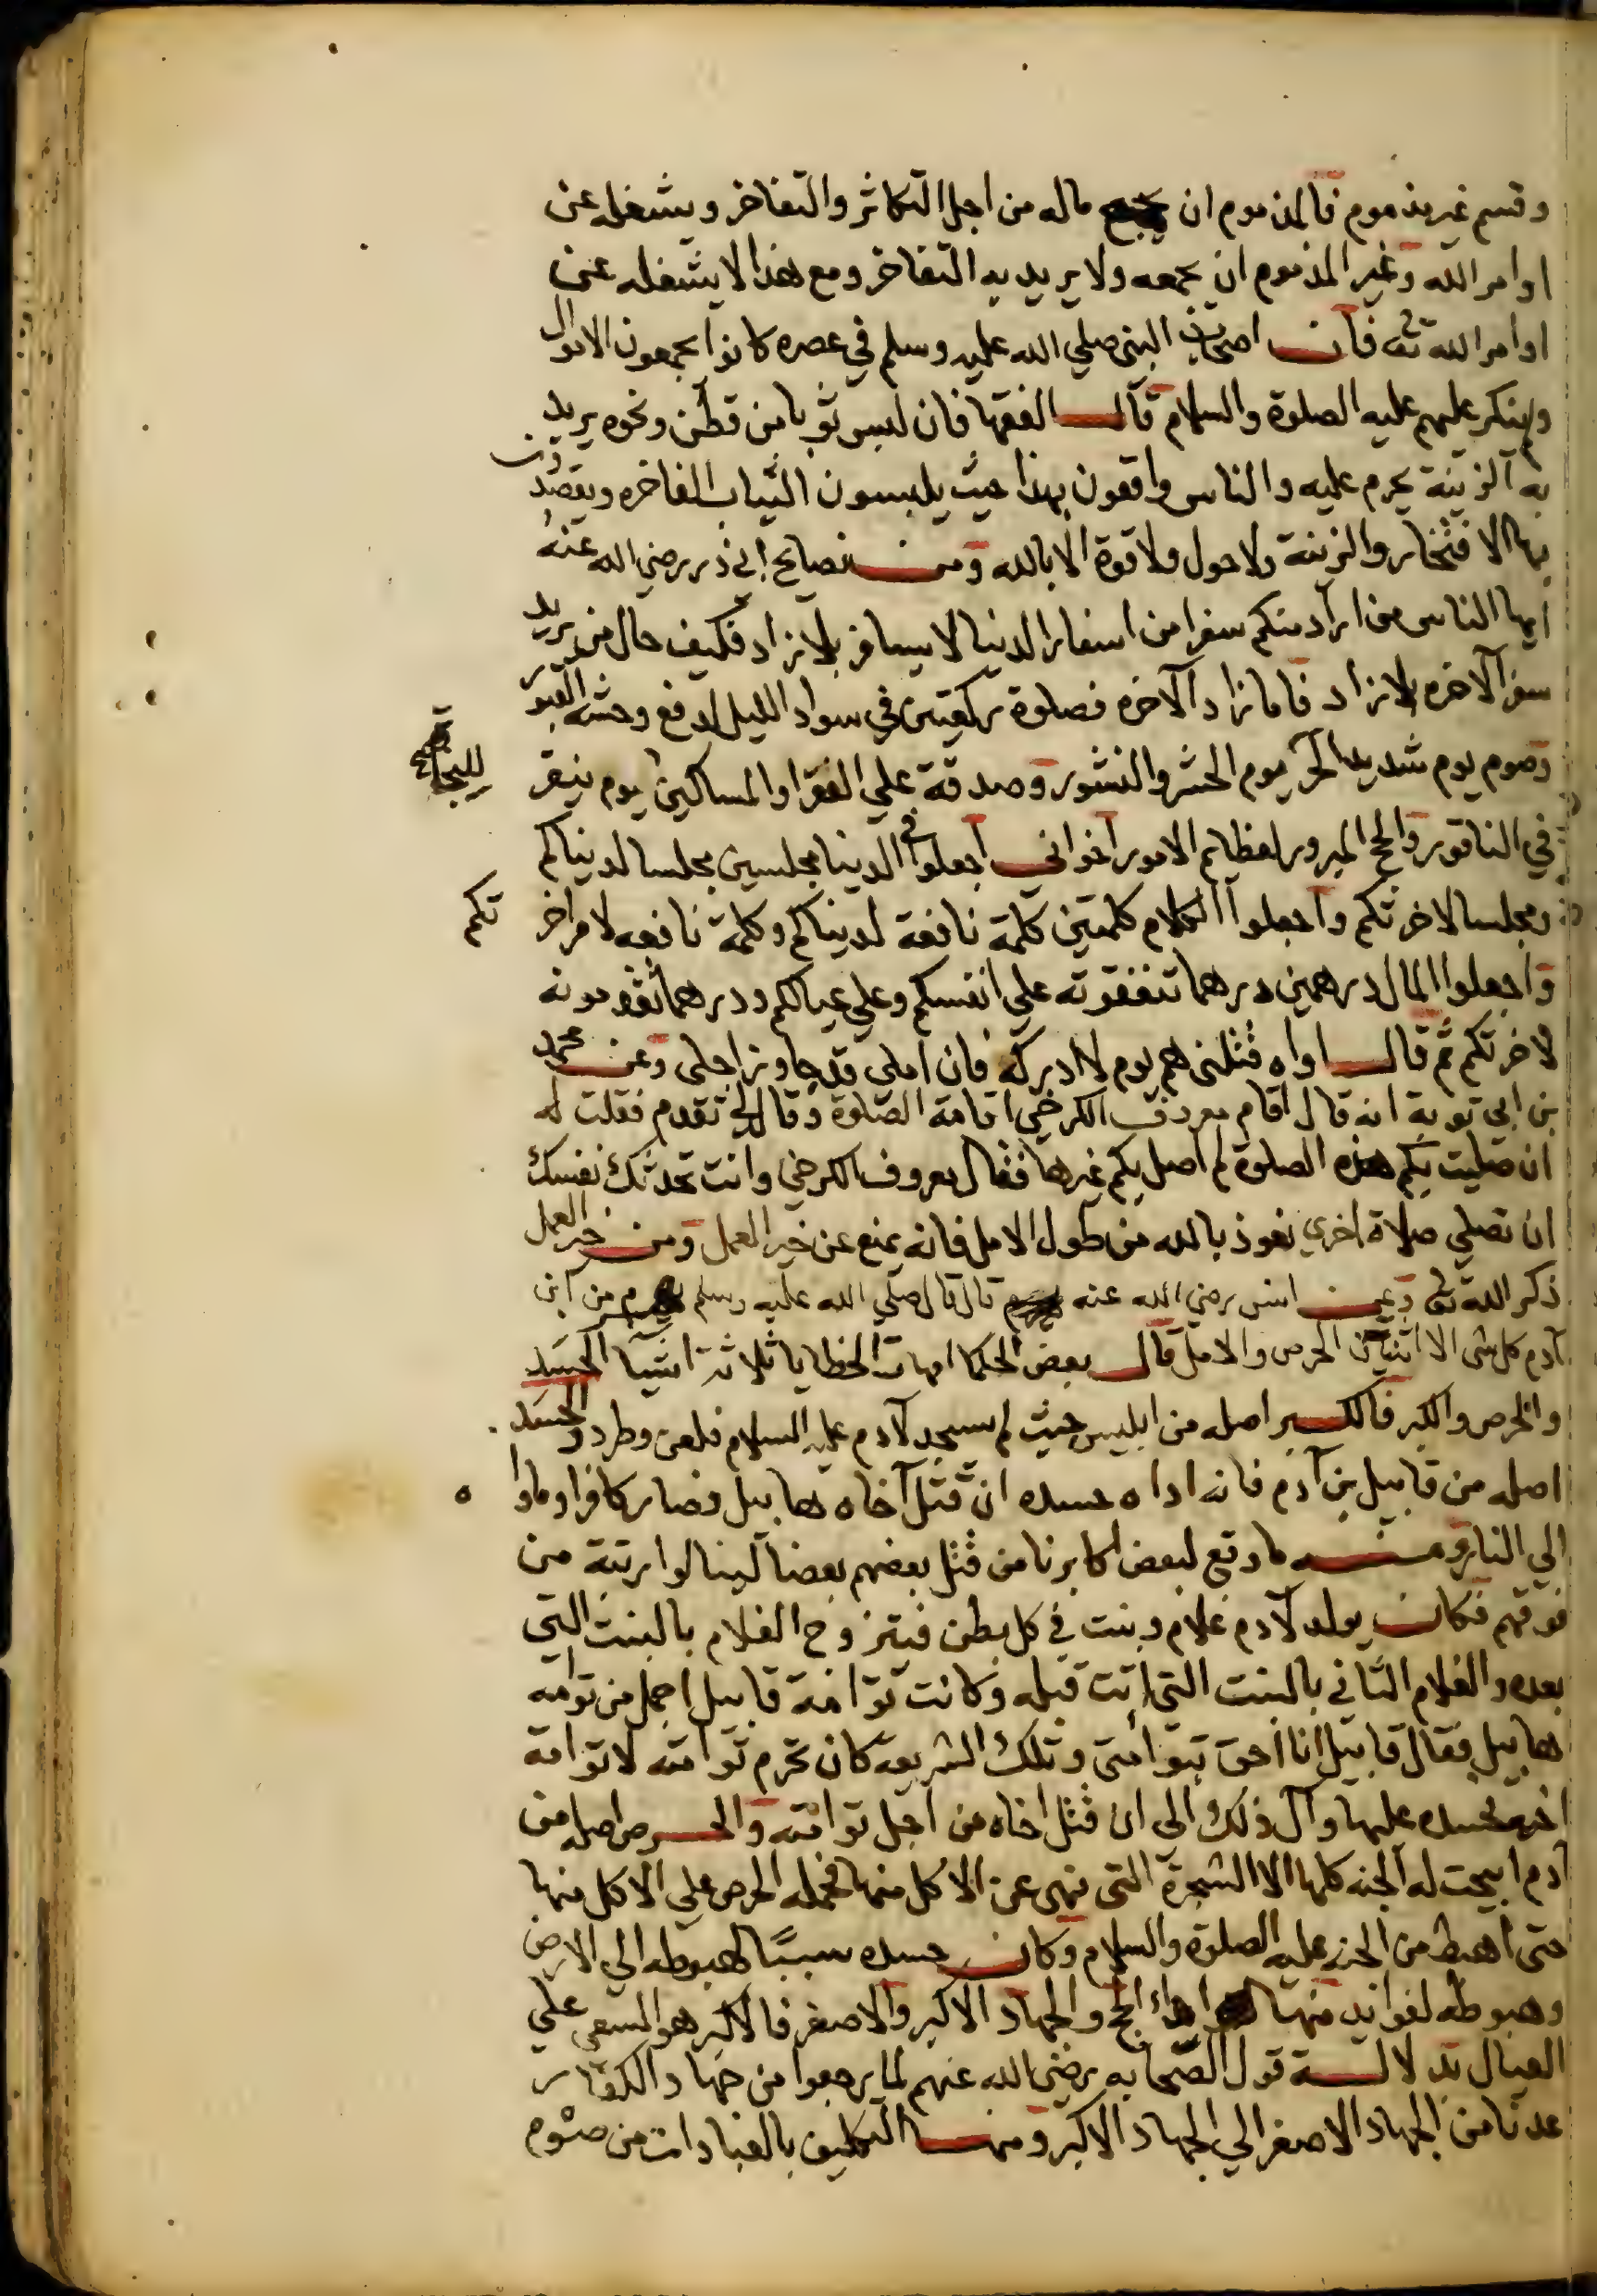 وقسم غير مذموم فالمذموم ان يجمع ماله من اجل التكاثر والتفاخر ويشغله عن
اوامر الله وغير المذموم ان يجمعه ولا يريد به التفاخر ومع هذا لا يشغله عن
اوامر الله تع فان اصحاب النبي صلي الله عليه وسلم في عصره كانوا يجمعون الاموال
ولم ينكر عليهم عليه الصلوة والسلام قال الفقها فان لبس ثوبا من قطن ونحوه يريد
به الزينة يحرم عليه والناس واقعون بهذا حيث يلبسون الثياب الفاخره ويقصدون
بها الافتخار والزينة ولا حول ولا قوة الا بالله ومن نصايح ابي ذر رضي الله عنه
ايها الناس من اراد منكم سفرا من اسفار الدنيا لا يسافر بلا زاد فكيف حال من يريد
سفر الآخره بلا زاد فاما زاد الآخره فصلوة ركعتين في سواد الليل لدفع وحشة القبور
وصوم يوم شديد الحر ليوم الحشر والنشور وصدقة علي الفقرا والمساكين ليوم ينقر
في الناقور والحج المبرور لعظايم الامور اخواني اجعلوا في الدنيا مجلسين مجلسا لدنياكم
ومجلسا لاخرتكم واجعلوا الكلام كلمتين كلمة نافعة لدنياكم وكلمة نافعه لامر اخر تكم
واجعلوا المال درهمين درهما تنفقونه علي انفسكم وعلي عيالكم ودرهما تقدمونه
لاخرتكم ثم قال اواه قتلني هم يوم لا ادركه فان املي قد جاوز اجلي وعن محمد
بن ابي توبة انه قال اقام معروف الكرخي اقامة الصلوة وقال لي تقدم فقلت له
ان صليت بكم هذه الصلوة لم اصل بكم غيرها فقال معروف الكرخي وانت تحدثك نفسك
ان تصلي صلاة اخري نعوذ بالله من طول الامل فانه يمنع عن خير العمل ومن خير العمل
ذكر الله تع وعن انس رضي الله عنه قال قال صلي الله عليه وسلم يهرم من ابن
آدم كل شى الا اثنتين الحرص والامل قال بعض الحكما امهات الخطايا ثلاثة اشيا الحسد
والحرص والكبر فالكبر اصله من ابليس حيث لم يسجد لآدم عليه السلام فلعن وطرد والحسد
اصله من قابيل بن آدم فانه اداه حسده ان قتل اخاه هابيل فصار كافرا وماوا ه
الي النار ومنه ما وقع لبعض اكابرنا من قتل بعضهم بعضا لينالوا رتبة من
فوقهم فكان يولد لآدم غلام وبنت في كل بطن فيتزوج الغلام بالبنت التي
بعده والغلام الثاني بالبنت التي اتت قبله وكانت توامة قابيل اجمل من توامه
هابيل فقال قابيل انا احق بتوامتى وتلك الشريعه كان تحرم توامته لا توامة
اخيه فحسده عليها وآل ذلك الي ان قتل اخاه من اجل توامته والحرص اصله من
آدم ابيحت له الجنه كلها الا الشجرة التي نهى عن الاكل منها فحمله الحرص علي الاكل منها
حتى اهبط من الجنه عليه الصلوة والسلام وكان حسده سببًا لهبوطه الي الارض
وهبوطه لفوايد منها اداء الحج والجهاد الاكبر والاصغر فالاكبر هو السعي علي
العيال بدلالة قول الصحابه رضي الله عنهم لما رجعوا من جهاد الكفار
عدنا من الجهاد الاصغر الي الجهاد الاكبر ومنها التكليف بالعبادات من صوم